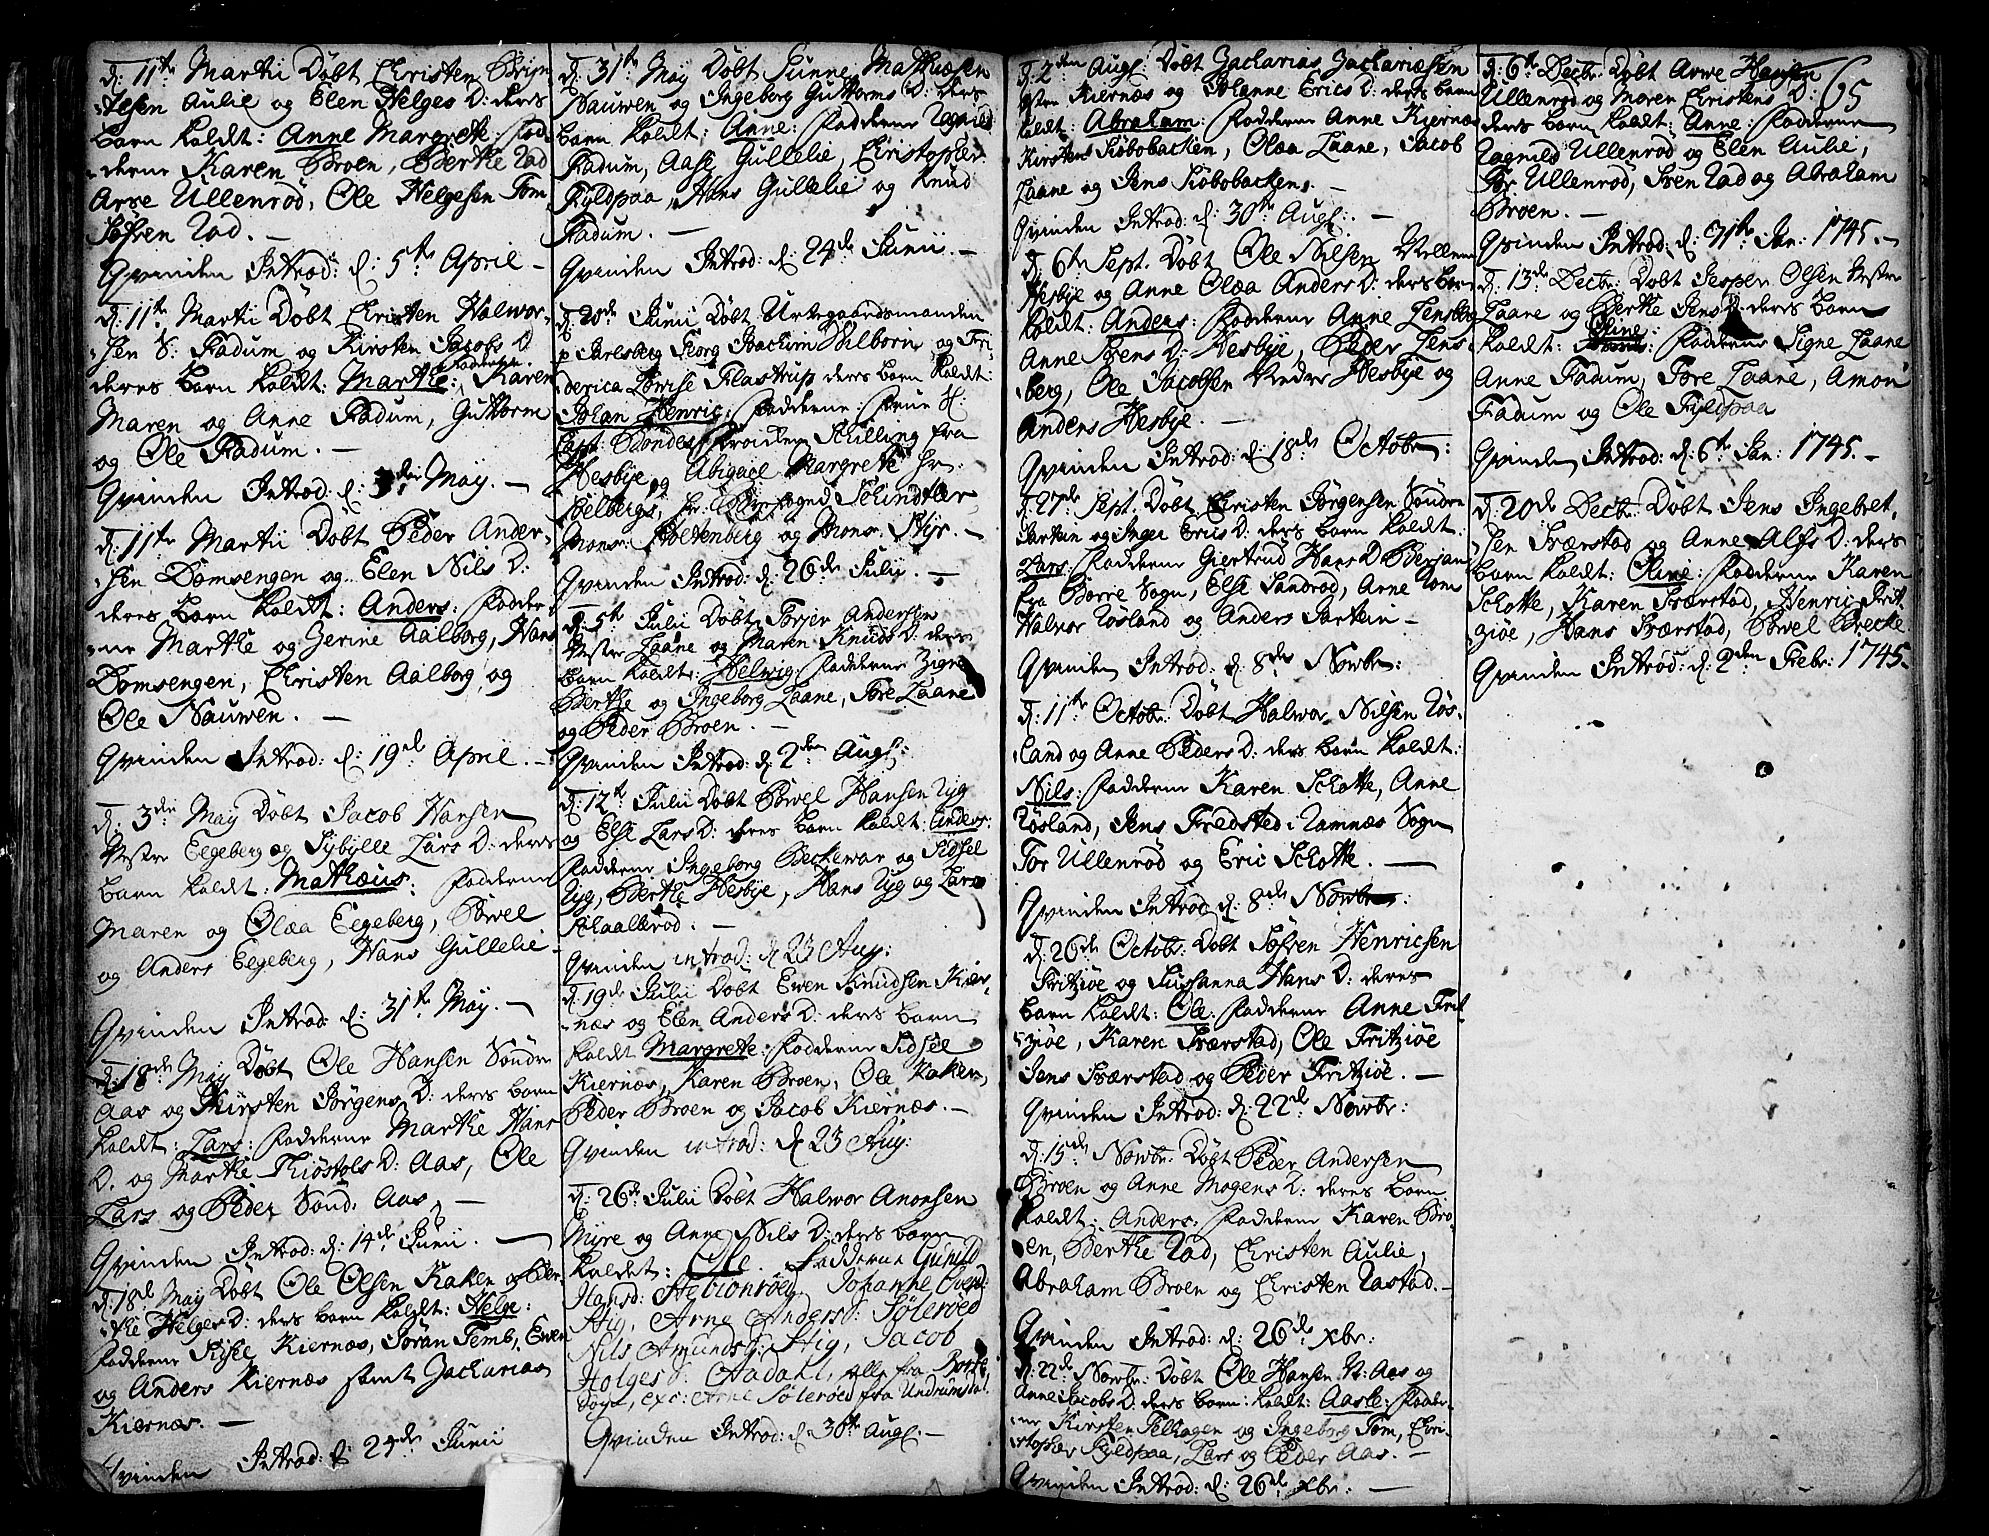 d: 11te Martii Döbt Christen Brÿn-
-ilsen Aulie og Elen Helges D: ders
barn kaldt: Anne Margrete: Fad-
-derne Karen Broen, Berthe Rad
Arve Ullenröd, Ole Helgesen Tom
Söfren Rad. —
Qvinden Introd: d: 5te April —
d: 11te Martii Döbt Christen Halvor-
-sen S: Fadum og Kirsten Jacobs D
deres barn kaldt: Marthe: Fadderne Karen
Maren og Anne Fadum, Guttorm
og Ole Fadum. —
Qvinden Introd: d: 3die May. —
d: 11te Martii Döbt Peder Ander-
-sen Domsengen og Elen Nils D:
deres barn kaldt: Anders: Fadder-
-ne Marthe og Gerine Aalborg, Hans
Domsengen, Christen Aalborg, og
Ole Nauwen. —
Qvinden Introd: d: 19de April. —
d: 3die May Döbt Jacob Hansen
Vestre Eegeberg og Sybylle Lars D: deres
barn kaldt: Mathæus: Fadderne
Maren og Olæa Eegeberg, Powel
og Anders Eegeberg, Hans Gullelie
Qvinden Introd: d: 31te May. —
d: 18de May Döbt Ole Hansen Söndre
Aas og Kirsten Jörgens D: deres barn
kaldt: Lars: Fadderne Marthe Hans
D. og Marthe Kiöstols D: Aas, Ole
Lars og Peder Sönd. Aas, —
Qvinden Introd: d: 14de Junii. —
d: 18de May Döbt Ole Olsen Kaken og Ber-
-the Helges D: ders barn kaldt: Helge:
Fadderne Kiernæs, Söran Temb, Even
og Anders Kiernæs samt Zacharias
Kiernæs. —
Qvinden Introd: d: 24de Junii
d: 31te May Döbt Gunne Mathæsen
Nauwen og Ingeborg Guttorms D: ders
barn kaldt: Anne: Fadderne Ragnild
Fadum, Aase Gullelie, Christopher
Fyldpaa, Hans Gullelie og Knud
Fadum. —
Qvinden Introd: d: 24de Junii. —
d: 20de Junii Döbt Urtegaardsmanden
p Jarlsberg Georg Joachim Wilborn og Fri-
derica Lovise Flastrup deres barn kaldt:
Johan Henric: Fadderne: Frue
Schilling fra
Hesbye, og Abigael Margrete Hr:
Schindtler
Mons: Holtenberg og Mons. Styr. —
Qvinden Introd: d: 26de Julii. —
d: 5te Julii Döbt Torjer Andersen
Vestre Laane og Maren Knuds D: ders
barn kaldt: Helvig: Fadderne Zigne
Berthe og Ingeborg Laane, Tore Laane
og Peder Broen. —
Qvinden Introd: d: 2den Augl:
d: 12te Julii Döbt Powel Hansen Ryg
og Else Lars D: deres barn kaldt: Anders:
Fadderne Ingeborg Beckewar og Sidsel
Ryg, Berthe Hesbye, Hans Ryg og Lars
Skaalleröd: —
Qvinden introd: d 23 Aug:
d: 19de Julii Döbt Even Knudsen Kier-
-næs og Elen Anders D: deres barn
kaldt Margrete: Fadderne Sidsel
Kiernæs, Karen Broen, Ole Kaken,
Peder Broen og Jacob Kiernæs. —
Qvinden introd: d 23 Aug:
d: 26de Julii Döbt Halwor Amonsen
Myre og Anne Nils D: ders barn
kaldet: Ole. Fadderne Gunild
Hansd: Johanne
Hig, Arne Andersd: Söleröed
Nils Amunds: Hig, Jacob
Holges: Aadahl, alle fra Borre
Sogn, exc: Arne Söleröed fra Undrumsdal.
Qvinden Introd: d 30te Augl. —
d: 2den Augl: Döbt Zacharias Zachariæsen
Vestre Kiernæs og Johanne Erics D: ders barn
kaldt: Abraham: Fadderne Anne Kiernæs
Kirsten Siöbobacken, Olæa Laane, Jacob
Laane og Jens Siöbobacken. —
Qvinden Introd: d: 30te Augl: —
d: 6te Sept. Döbt Ole Nilsen Mellem
Hesbye og Anne Olæa Anders D: ders barn
kaldt: Anders: Fadderne Anne Jensberg
Anne Sörens D: Hesbye, Peder Jens-
berg, Ole Jacobsen Neder Hesbye og
Anders Hesbye. —
Qvinden Introd: d: 18de Octobr:
d: 27de Sept. Döbt Christen Jörgensen Söndre
Sartein og Inger Erics D: ders barn kaldt
Lars: Fadderne Giertrud Hans D Berjan
fra Borre Sogn, Else Sandröd, Arne Tom
Halvor Rösland og Anders Sartein —
Qvinden Introd: d: 8de Novbr:
d: 11te Octobr: Döbt Halwor Nilsen Rös-
land og Anne Peders D: ders barn kaldt:
Nils: Fadderne Karen Schotte, Anne
Rösland, Jens Fredsted i Ramnæs Sogn
Tor Ullenröd og Eric Schotte. —
Qvinden Introd: d: 8de Novbr:
d: 26de Octobr: Döbt Söfren Henricsen
Fritziöe og Susanna Hans D: deres
barn kaldt: Ole: Fadderne Anne Frit-
-ziöe, Karen Sværstad, Ole Fritziöe
Jens Sværstad og Peder Fritziöe. —
Qvinden Introd: d: 22de Novbr:
d: 15de Novbr: Döbt Peder Andersen
Broen og Anne Mogens D: deres barn
kaldt: Anders. Fadderne Karen Bro-
en, Berthe Rad, Christen Aulie,
Abraham Broen og Christen Rastad. —
Qvinden Introd: d: 26de xbr:
d: 22de Novbr: Döbt Ole Hansen N: Aas og
Anne Jacobs D: ders barn: kaldt: Aasle: Fadder-
-ne Kirsten Selhagen og Ingeborg Tom, Chri-
-stopher Fyldpaa, Lars og Peder Aas. —
Qvinden Introd: d: 26de xbr: —
65
d: 6te Decbr: Döbt Arwe Hansen
Ullenröd og Maren Christens D:
deres barn kaldt: Anne: Fadderne
Ragnild Ullenröd og Elen Aulie,
Tor Ullenröd, Sven Rad og Abraham
Broen. —
Qvinden Introd: d: 31te Jan: 1745. —
d: 13de Decbr: Döbt Jesper Olsen Vestre
Laane og Berthe Jens D: deres barn
kaldt: Oline: Fadderne Signe Laane
Anne Fadum, Tore Laane, Amon
Fadum og Ole Fyldpaa
Qvinden Introd: d: 6te Jan: 1745. —
d: 20de Decbr: Döbt Jens Ingebret-
-sen Sværstad og Anne Alfs D: ders
barn kaldt: Oline: Fadderne Karen
Schotte, Karen Sværstad, Henric Frit-
ziöe, Hans Sværstad, Powel Brecke
Qvinden Introd: d: 2den Febr: 1745.